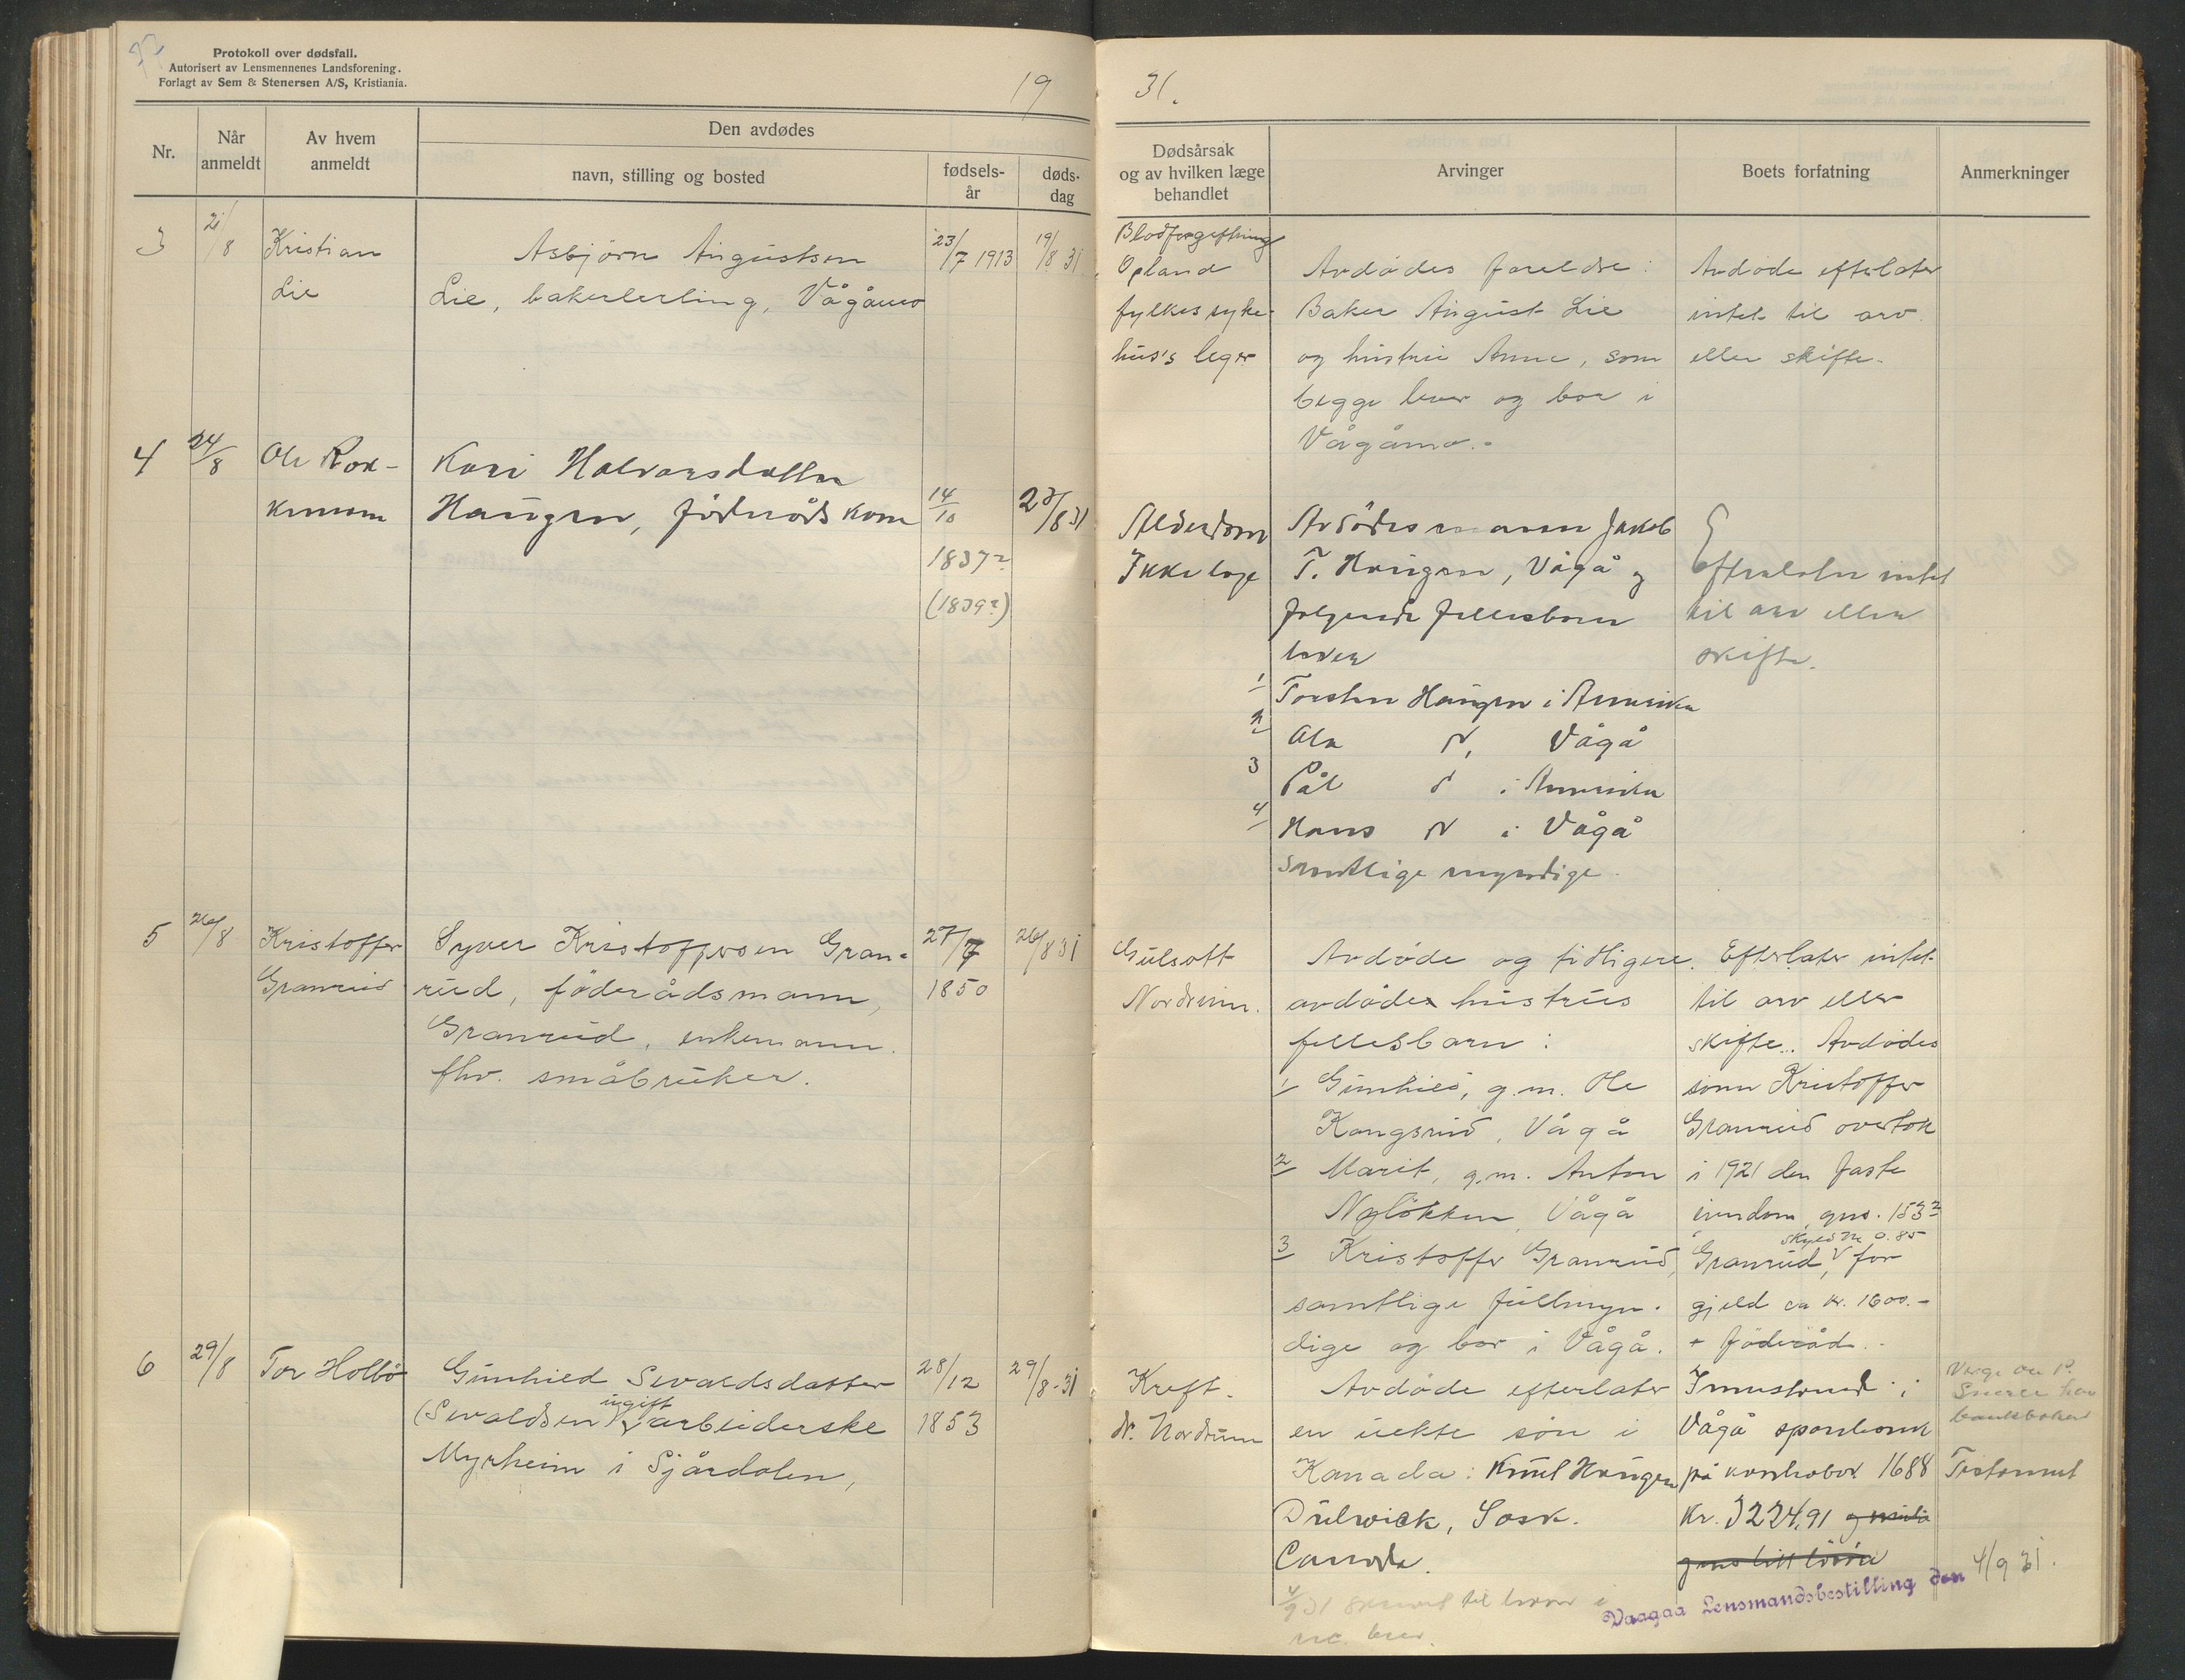 Protokoll over dødsfall.
Autorisert av Lensmennenes Landsforening.
Forlagt av Sem & Stenersen A/S, Kristiania.
19
Nr.
Når anmeldt
Av hvem anmeldt
Den avdødes
navn, stilling og bosted
fødsels-
år
døds-
dag
3
21/8
Kristian
Lie
Asbjörn Augustsen
Lie, bakerlerling, Vågåmo
23/7 1913
19/8 31
4
24/8
Ole
Kari Halvorsdatter
Haugen, föderådskone
14/10
1837?
(1839?)
23/8 31
5
26/8
Kristoffer
Granrud
Syver Kristoffersen Gran-
rud, föderådsmann,
Granrud, enkemann.
fhv. småbruker.
27/7
1850
26/8 31
6
29/8
Tor Holbö
Gunhild Sevaldsdatter
ugift
(Sevaldsen) arbeiderske
Myrheim i Sjårdalen,
28/12
1853
29/8-31
31.
Dødsårsak
og av hvilken læge
behandlet
Arvinger
Boets forfatning
Anmerkninger
Blodforgiftning
Opland
fylkessyke-
hus's leger
Avdödes foreldre:
Baker August Lie
og hustru Anne, som
begge lever og bor i
Vågåmo.-
Avdöde efterlater
intet til arv
eller skifte.
Alderdom
Ikke lege
Avdödes mann Jakob
T. Haugen, Vågå og
følgende fellesbarn
lever
1 Torsten Haugen i Amerika
2 Ola Vågå
3 Pål i Amerika
4 Hans i Vågå
samtlige myndige.
Efterlater intet
til arv eller
skifte.
Gulsott
Nordrum.
Avdöde og tidligere
avdöde hustrus
fellesbarn:
1 Gunhild, g.m. Ole
Kongsrud, Vågå
2 Marit, g.m. Anton
Nylökken, Vågå
3 Kristoffer Granrud,
samtlige fullmyn-
dige og bor i Vågå.
Efterlater intet
til arv eller
skifte. Avdödes
sönn Kristoffer
Granrud overtok
i 1921 den faste
eiendom, gno. 153
skyld m 0.85
Granrud, for
gjeld ca kr. 1600.-
+ föderåd.
Kreft.
dr. Nordrum
Avdöde efterlater
en uekte sön i
Kanada: Knut Haugen
Dulwick, Sask.
Canada.
Innestående i
Vågå sparebank
på kontrabok 1688
Kr. 3224,91
har
bankboken
Testament
4/9 31
til
brev.
Vaagaa Lensmandsbestilling den 4/9 31.